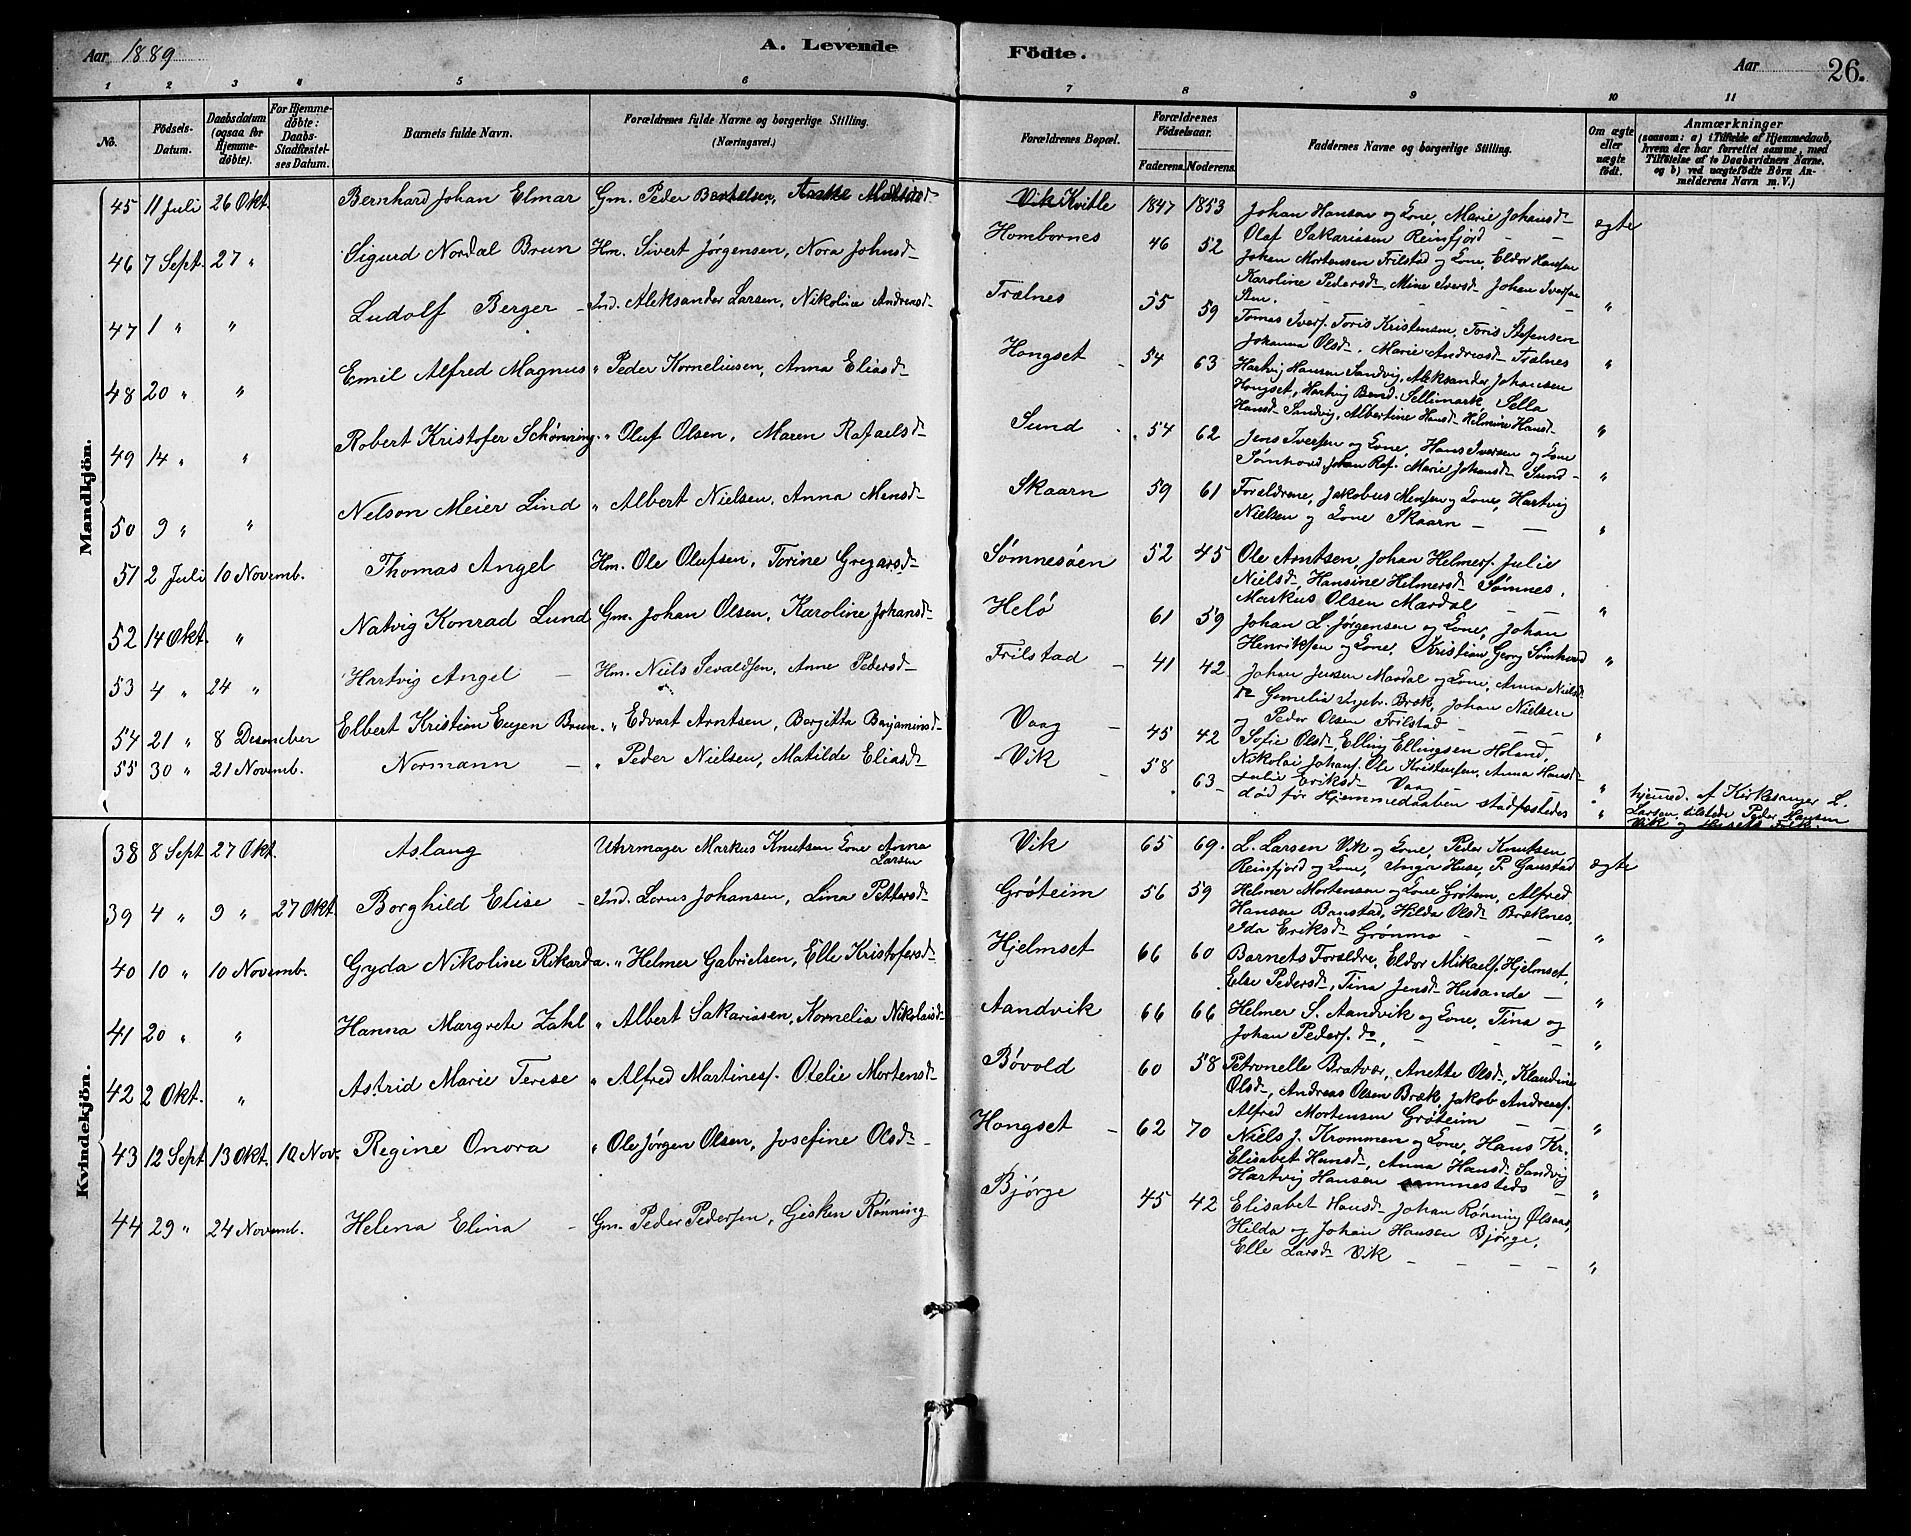 Aar 1889
A. Levende
Födte.
Aar
26.
1 2 3 4 5 6 7 8 9 10 11
No.
Födsels-Datum.
Daabsdatum (ogsaa for Hjemmedöbte).
For Hjemmedöbte: Daabs-Stadfæstelses Datum.
Barnets fulde Navn.
Forældrenes fulde Navne og borgerlige Stilling. (Næringsvei.)
Forældrenes Bopæl.
Forældrenes Födselsaar.
Faderens. Moderens.
Faddernes Navne og borgerlige Stilling.
Om ægte eller uægte födt.
Anmærkninger
(saasom: a) i Tilfælde af Hjemmedaab, hvem der har forrettet samme, med Tilföielse af to Daabsvidners Navne, og b) ved uægtefödte Börn Anmelderens Navn m. V.)
Mandkjön.
45 11 Juli 26 Okt. Bernhard Johan Elmar Gm. Peder Bertelsen, Vik Kvitle 1847 1853 Johan Hansen og Kone, Marie Johansd. ægte
Olaf Sakariassen Reinfjörd
46 7 Sept. 27 " Sigurd Nordal Brun Hm. Sivert Jørgensen, Nora Johnsd. Hombornes 46 52 Johan Mortensen Frilstad og Kone, Eldor Hansen
Karoline Pedersd. Mine Iversd. Johan Iversen "
47 1 " " Ludolf Berger Ind. Aleksander Larsen, Nikolia Andreasd. Trælnes 55 59 Tomas Ivers. Toris Kristensen, Toris Stefensen
Johanna Olsd. Marie Andreasd. Trælnes "
48 20 " " Emil Alfred Magnus " Peder Korneliusen, Anna Eliasd. Hongset 54 63 Hartvig Hansen Sandvig, Aleksander Johansen
Hongset, Hartvig Bend. Sellimark, Sella
Hansd. Sandvig, Albertine Hansd. Helmine Hansd. "
49 14 " " Robert Kristofer Schønning " Oluf Olsen, Maren Rafaelsd. Sund 54 62 Jens Iversen og Kone, Hans Iversen og Kone
Sømhoved, Johan Raf. Marie Johansd. Sund "
50 9 " " Nelson Meier Lind " Albert Nielsen, Anna Mensd. Skaarn 59 61 Forældrene, Jakobus Mensen og Kone, Hartvig
Nielsen og Kone Skaarn "
51 2 Juli 10 Novemb. Thomas Angel Hm. Ole Olufsen, Torine Gregarsd. Sømnesøen 52 45 Ole Arntsen, Johan Helmers. Julie
Nielsd. Hansine Helmersd. Sømnes.
Markus Olsen Mardal "
52 14 Okt. " Natvig Konrad Lund Gm. Johan Olsen, Karoline Johansd. Helö 61 59 Johan L. Jørgensen og Kone, Johan
Henriksen og Kone, Kristian Georg Sømhoved "
53 4 " 24 " Hartvig Angel Hm. Niels Sevaldsen, Anne Pedersd. Frilstad 41 42 Johan Jensen Mardal og Kone, Anna Nielsd.
Kornelia Ingebr. Bræk, Johan Nielsen
og Peder Olsen Frilstad "
54 21 " 8 Desember Elbert Kristian Eugen Brun " Edvart Arntsen, Bergitta Benjaminsd. Vaag 45 42 Sofie Olsd. Elling Ellingsen Høland,
Nikolai Johans. Ole Kristensen, Anna Hansd.
Julie Eriksd. Vaag "
55 30 " 21 Novemb. Normann " Peder Nielsen, Matilde Eliasd. Vik 58 63 død før Hjemmedaaben stadfæstedes " hjemmed. af Kirkesanger L.
Larsen, tilstede Peder Hansen
Vik og
Kvindekjön.
38 8 Sept 27 Okt. Aslaug Uhrmager Markus Knutsen Kone Anna Larsen Vik 65 69 L. Larsen Vik og Kone, Peder Knutsen
Reinfjord og Kone, Inga Huse, P. Gaustad ægte
39 4 " 9 " 27 Okt. Borghild Elise Ind. Lorns Johansen, Lina Pettersd. Grøteim 56 59 Helmer Mortensen og Kone Grøtem, Alfred
Hansen Banstad, Hilda Olsd. Bræknes,
Ida Eriksd. Grønmo "
40 10 " 10 Novemb. Gyda Nikoline Rikarda " Helmer Gabrielsen, Elle Kristofersd. Hjelmset 66 60 Barnets Forældre, Eldor Mikaels. Hjelmset,
Else Pedersd., Tina Jensd. Husande "
41 20 " " Hanna Margrete Zahl " Albert Sakariassen, Kornelia Nikolaisd. Aandvik 66 66 Helmer S. Aandvik og Kone, Tina og
Johan Peders. do "
42 2 Okt. " Astrid Marie Terese " Alfred Martines. Otelie Mortensd. Bøvold 60 58 Petronelle Bratvær, Anette Olsd., Klaudine
Olsd., Andreas Olsen Bræk, Jakob Andreas.
Alfred Mortensen Grøteim "
43 12 Sept 13 Okt. 10 Nov. Regine Onora " Ole Jørgen Olsen, Josefine Olsd. Hongset 62 70 Niels J. Krommen og Kone, Hans Kr.
Elisabet Hansd., Anna Hansd. Sandvig
Hartvig Hansen sammesteds "
44 29 " 24 Novemb. Helena Elina Gm. Peder Pedersen, Gisken Rønning Bjørge 45 42 Elisabet Hansd. Johan Rønning Olsaas,
Hilda og Johan Hansen Bjørge,
Elle Larsd. Vik "